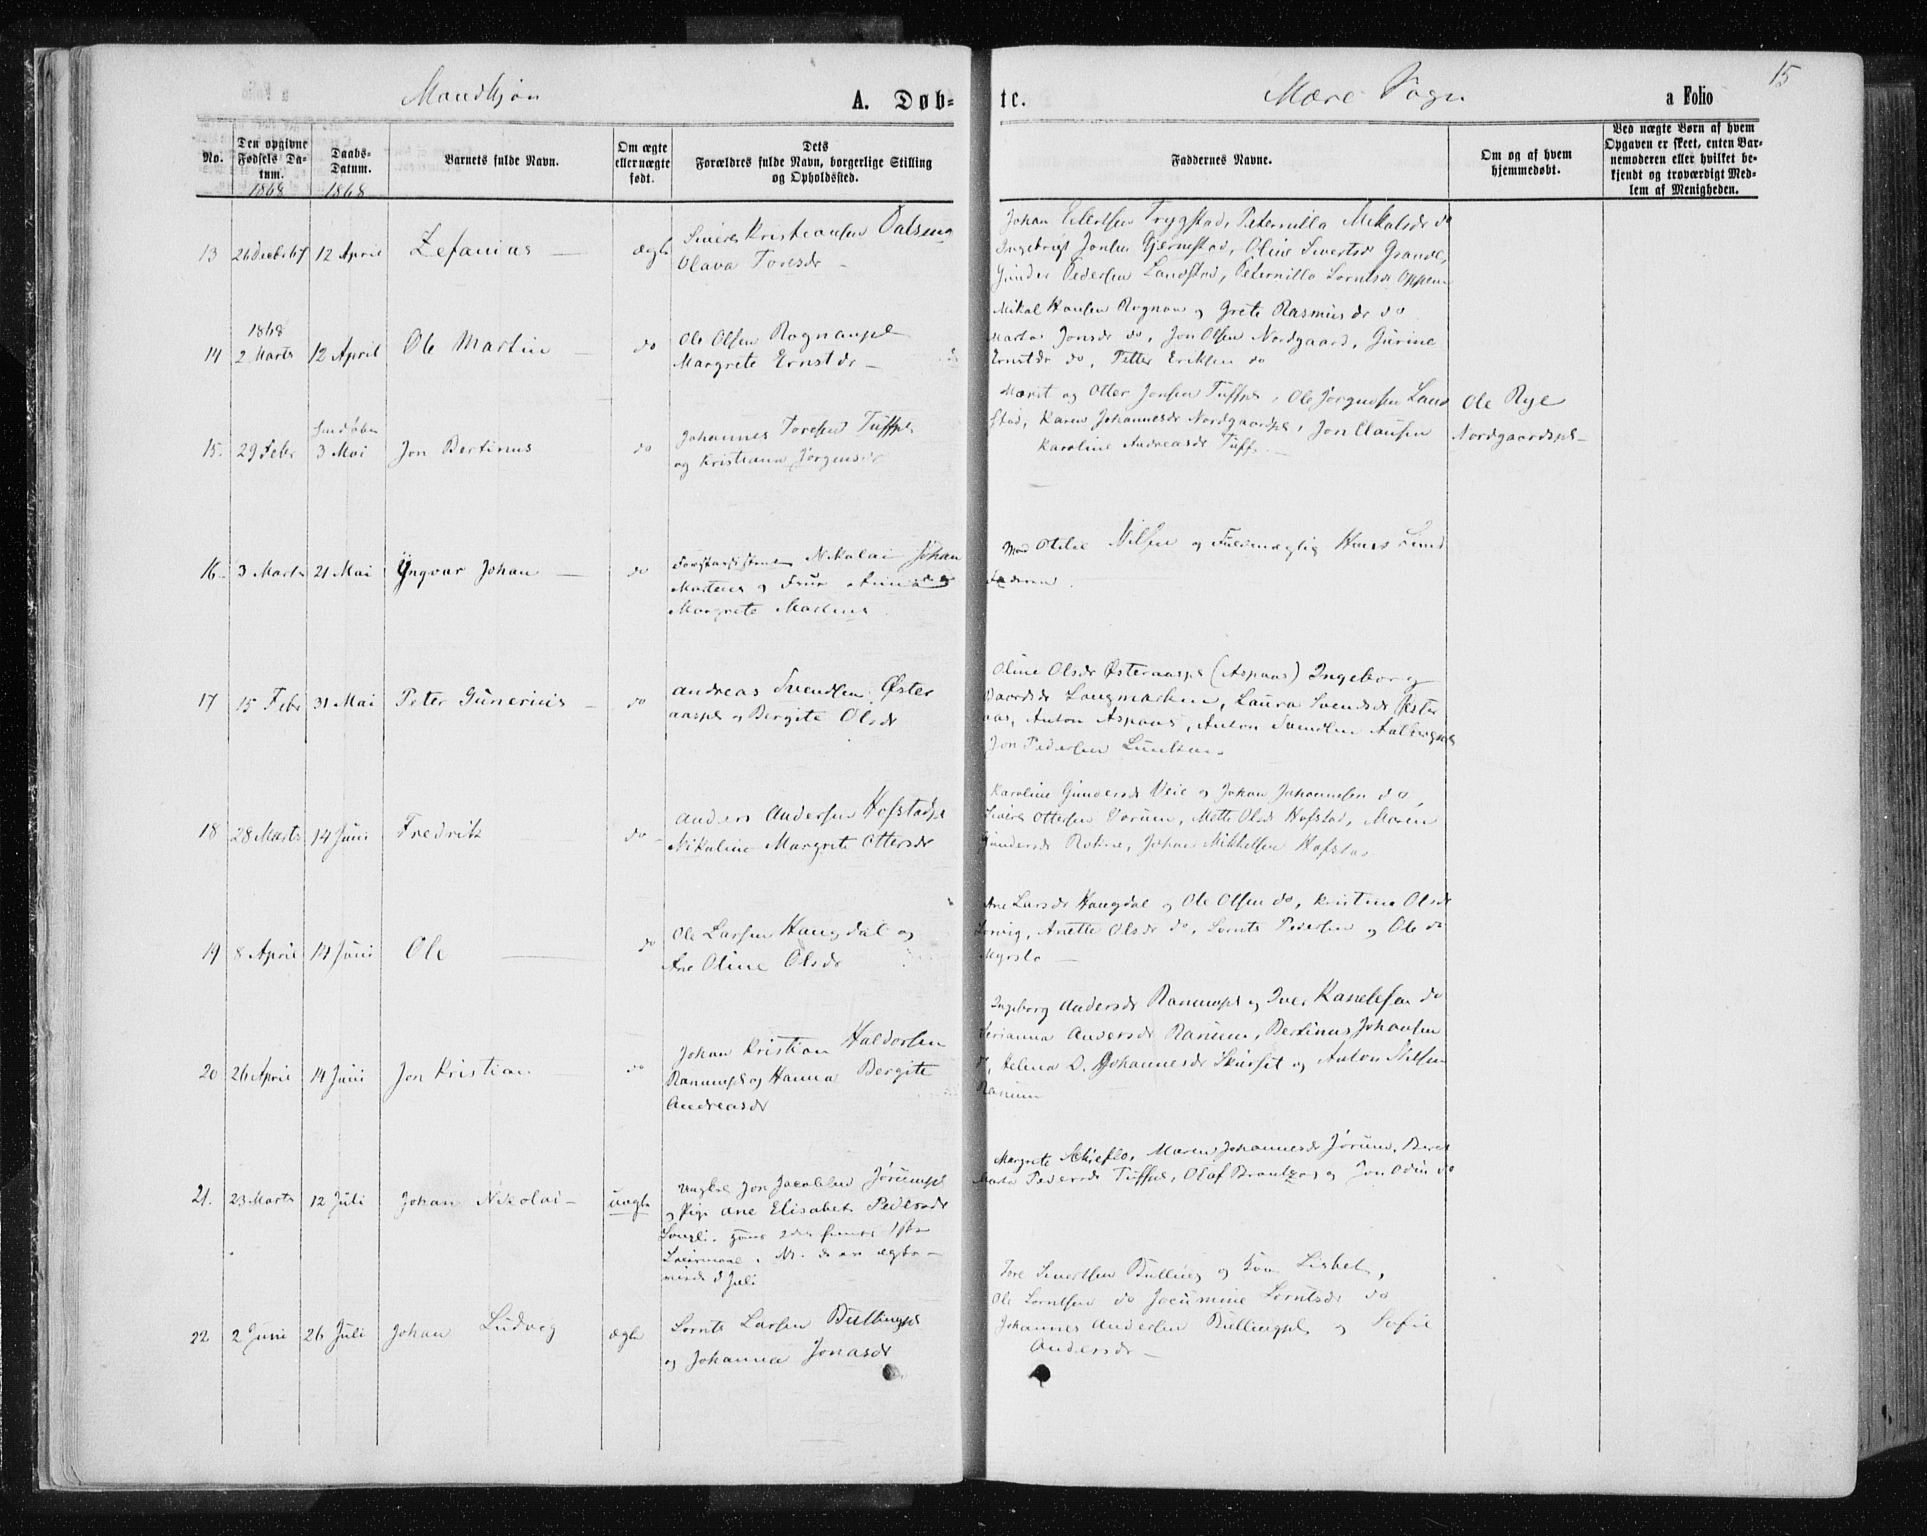 15
Mandkjøn
A. Døb-
te.
Mære Sogn
a Folio
No.
Den opgivne
Fødsels Da-
tum.
1868
Daabs-
Datum.
1868
Barnets fulde Navn.
Om ægte
eller uægte
født.
Dets
Forældres fulde Navn, borgerlige Stilling
og Opholdssted.
Faddernes Navne.
Om og af hvem
hjemmedøbt.
Ved uægte Børn af hvem
Opgaven er skeet, enten Bar-
nemoderen eller hvilket be-
kjendt og troværdigt Med-
lem af Menigheden.
13 26 Decbr 67 12 April Zefanias — ægte
Sivert Kristiansen Dalsmo
Olava Toresdr —
Johan Eilertsen Trygstad, Peternilla Mikalsdr do
Ingebrigt Jonsen Gjernestad, Oline Sivertsdr Grande,
Gunder Pedersen Landstad, Peternilla Lorntsdr
1868
14 2 Marts 12 April Ole Martin — do
Ole Olsen Rognanpl
Margrete Ernstdr —
Mikal Hansen Rognan og Grete Rasmusdr do
Marta Jonsdr do, Jon Olsen Nordgaard, Gurine
Ernstdr do, Petter Eriksen do
15. 29 Febr 3 Mai Jon Bertinus do
Johannes Toresen Tuffpl
og Kristiana Jørgensdr
Marit og Otter Jonsen Tuffpl, Ole Jørgensen Land
stad, Karen Johannesdr Nordgaardspl, Jon Clausen
Karoline Andreasdr Tuff —
Ole Rye
Nordgaardspl —
16 3 Marts 21 Mai Yngvar Johan — do
Forstassistent Nikolai Johan
Martens og Frue Anna
Margrete Martens
Otilie Nilsen og Hans Lund
Faderen.
17 15 Febr 31 Mai Peter Gunerius — do
Andreas Svendsen Øster
aaspl og Bergite Olsdr
Oline Olsdr Østeraaspl (Aspaas) Ingeborg
Baardsdr Langmarken, Laura Svendsdr Øster
aas, Anton Aspaas, Anton Svendsen
Jon Pedersen
18 28 Marts 14 Juni Fredrik do —
Anders Andersen Hofstadpl
Nikoline Margrete Ottersdr
Karoline Gundersdr Veie og Johan Johannesen do,
Sivert Ottersen Vorum, Mette Olsdr Hofstad, Maren
Gundersdr Johan Mikkelsen Hofstad
19 8 April 14 Juni Ole — do
Ole Larsen Haugdal og
Ane Oline Olsdr
Ane Larsdr Haugdal og Ole Olsen do, Kristina Olsdr
Anette Olsdr do, Lornts Pedersen og Ole do
—
20 26 April 14 Juni Jon Kristian — do
Johan Kristian Haldorsen
Ranumpl og Hanna Bergite
Andreasdr
Ingeborg Andersdr Ranumpl og Iver Kanelesen do
Andersdr Ranum, Bertinus Johansen
do, Helena D. Johannesdr Skarset og Anton Nilsen
Ranum
21. 23 Marts 12 Juli Johan Nikolai — uægte
Ungkarl Jon Jacobsen Jørumpl
og Pige Ane Elisabet Pedersdr
Leiermaal.
Juli
Margrete Maren Johannesdr Jørum, Beret
Marta Pedersdr Tuffpl, Olaf og Jon Odin do
22 2 Juni 26 Juli Johan Ludvig ægte
Lornts Larsen Bullingpl
og Johanna Jonasdr
Tore Sivertsen Bulling og Kone Lisbet,
Ole Lorntsen do Jocumine Lorntsdr do
Johannes Andersen Bullingpl og Sofie
Andersdr —